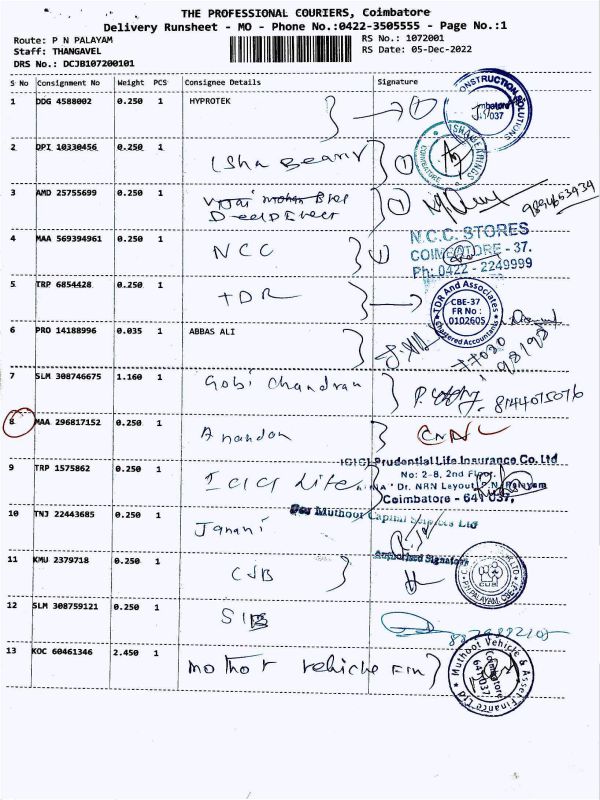 THE PROFESSIONAL COURIERS, Coimbatore
Delivery Runsheet - MO - Phone No.:0422-3505555 - Page No.:1
Route: P N PALAYAM
RS No.: 1072001
Staff: THANGAVEL
RS Date: 05-Dec-2022
DRS No.: DCJB107200101
S No Consignment No Weight PCS Consignee Details Signature
1 DDG 4588002 0.250 1 HYPROTEK
ONSTRUCTION SOLUTIONS
2 DPI 10330456 0.250 1 Isha Bearing
ISHA BEARINGS COIMBATORE
3 AMD 25755699 0.250 1
9894653934
4 MAA 569394961 0.250 1 NCC
N.C.C. STORES
COIMBATORE - 37.
Ph: 0422 - 2249999
5 TRP 6854428 0.250 1 TDR
TDR And Associates
CBE-37
FR No :
010260S
Chartered Accountants
6 PRO 14188996 0.035 1 ABBAS ALI
7 SLM 308746675 1.160 1 Gobi Chandran
8144015076
8 MAA 296817152 0.250 1 Anandan
9 TRP 1575862 0.250 1 ICICI Life
ICICI Prudential Life Insurance Co. Ltd
No: 2-8, 2nd Floor,
Dr. NRN Layout, P.N. Palayam
Coimbatore - 641 037.
10 TNJ 22443685 0.250 1 Janani
For Muthoot Capital Services Ltd
Authorised Signatory
11 KMU 2379718 0.250 1 CJB
12 SLM 308759121 0.250 1 SIB
13 KOC 60461346 2.450 1 mothot vehicle Fin
Muthoot Vehicle & Asset Finance Ltd
Coimbatore
641 037